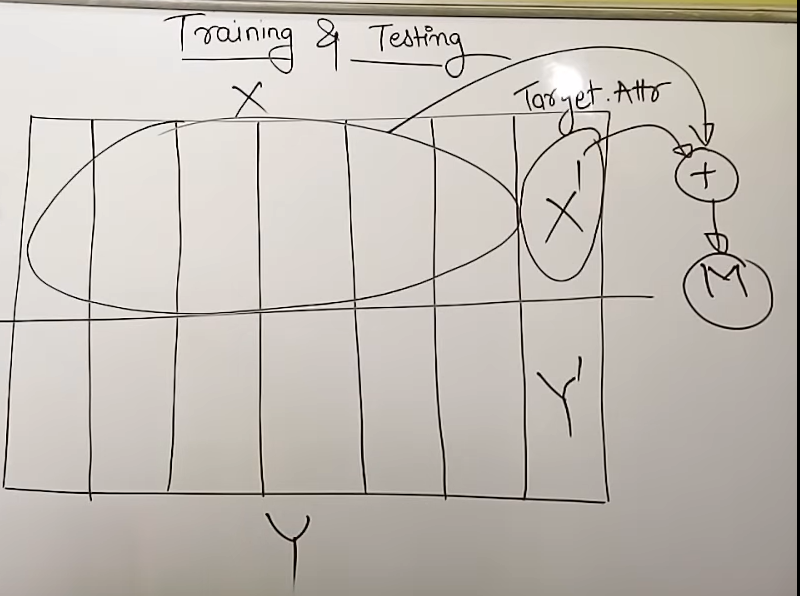 Training & Testing
X
Target. Attr
X'
+
M
Y'
Y